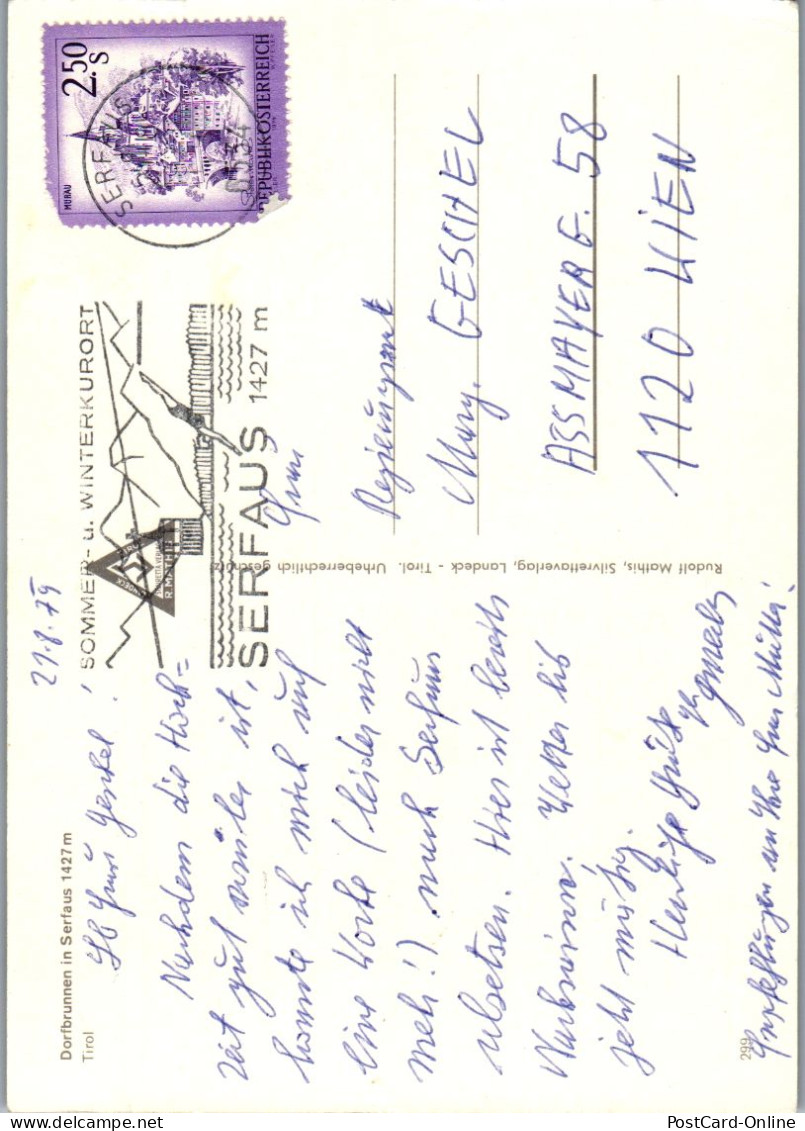 Dorfbrunnen in Serfaus 1427 m
Tirol
21.8.79
Lb Frau Geschel!
Nachdem die Hoch=
zeit gut vorüber ist,
konnte ich mich auf
eine Woche (leider nicht
mehr!) nach Serfaus
absetzen. Hier ist bereits
Nachsaison. Wetter bis
jetzt mäßig.
Herzliche Grüße
Empfehlungen an Ihre Frau Mutter!
299
Rudolf Mathis, Silvrettaverlag, Landeck - Tirol. Urheberrechtlich geschützt
SOMMER- u. WINTERKURORT
SERFAUS 1427 m
R. MATHIS
SERFAUS
6534
2.50 S
REPUBLIK ÖSTERREICH
MURAU
Frau
Regierungsrat
Marg. GESCHEL
ASSMAYERG. 58
1120 WIEN
PostCard-Online